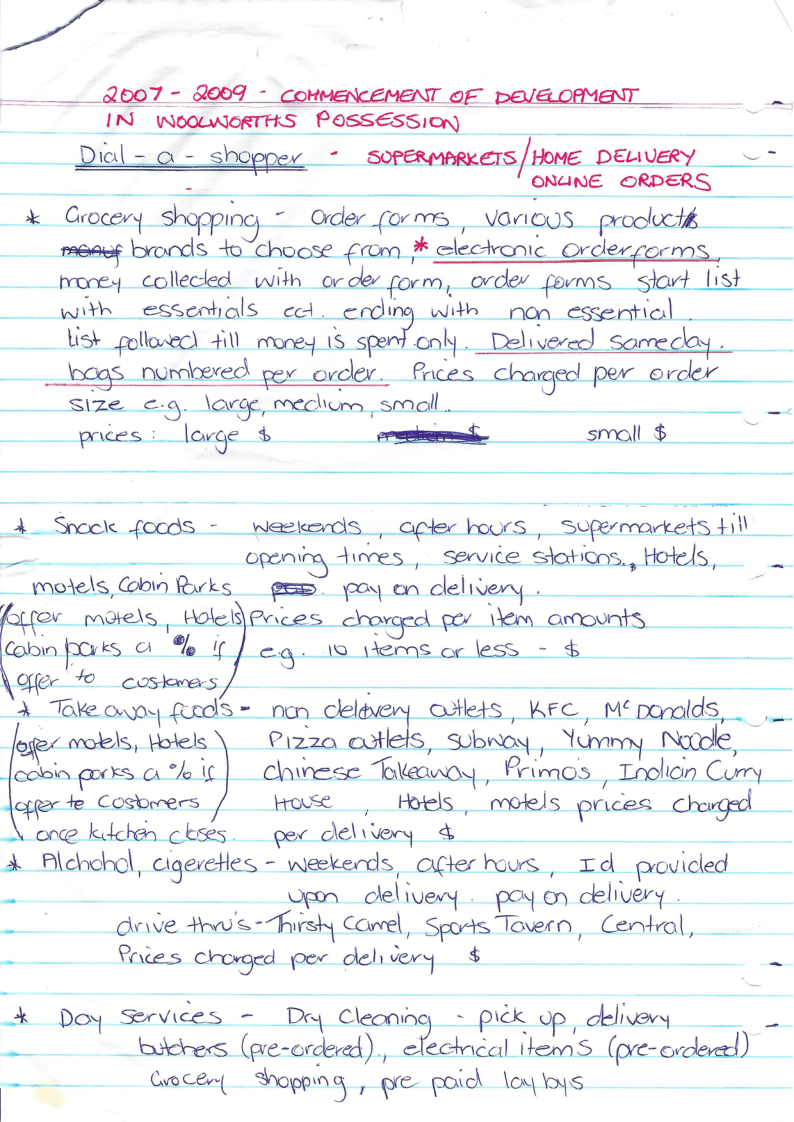 2007 - 2009 - COMMENCEMENT OF DEVELOPMENT
IN WOOLWORTHS POSSESSION
Dial - a - shopper - SUPERMARKETS/HOME DELIVERY
ONLINE ORDERS
* Grocery shopping - order forms, various products
brands to choose from, * electronic orderforms,
money collected with order form, order forms start list
with essentials ect. ending with non essential.
list followed till money is spent only. Delivered sameday.
bags numbered per order. Prices charged per order
size e.g. large, medium, small.
prices: large $ medium $ small $
* Snack foods - weekends, after hours, supermarkets till
opening times, service stations, Hotels,
motels, Cabin Parks pay on delivery.
(offer motels, Hotels) Prices charged per item amounts
cabin parks a % if e.g. 10 items or less - $
offer to customers
* Take away foods - non delevery outlets, KFC, Mc Donalds,
(offer motels, Hotels Pizza outlets, subway, Yummy Noodle,
cabin parks a % if Chinese Takeaway, Primo's, Indian Curry
offer to costomers House, Hotels, motels prices charged
once kitchen closes. per delivery $
* Alchohol, cigerettes - weekends, after hours, Id provided
upon delivery. pay on delivery.
drive thru's - Thirsty Camel, Sports Tavern, Central,
Prices charged per delivery $
* Day services - Dry Cleaning - pick up, delivery
butchers (pre-ordered)., electrical items (pre-ordered)
Grocery shopping, pre paid lay bys